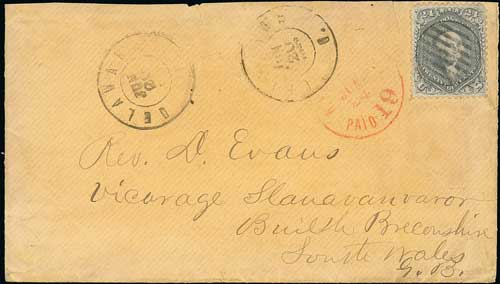 DELAWARE
JUN
PAID
19
24
24
Rev. D. Evans
Vicarage Llanavanvawr
Builth Breconshire
South Wales
G.B.